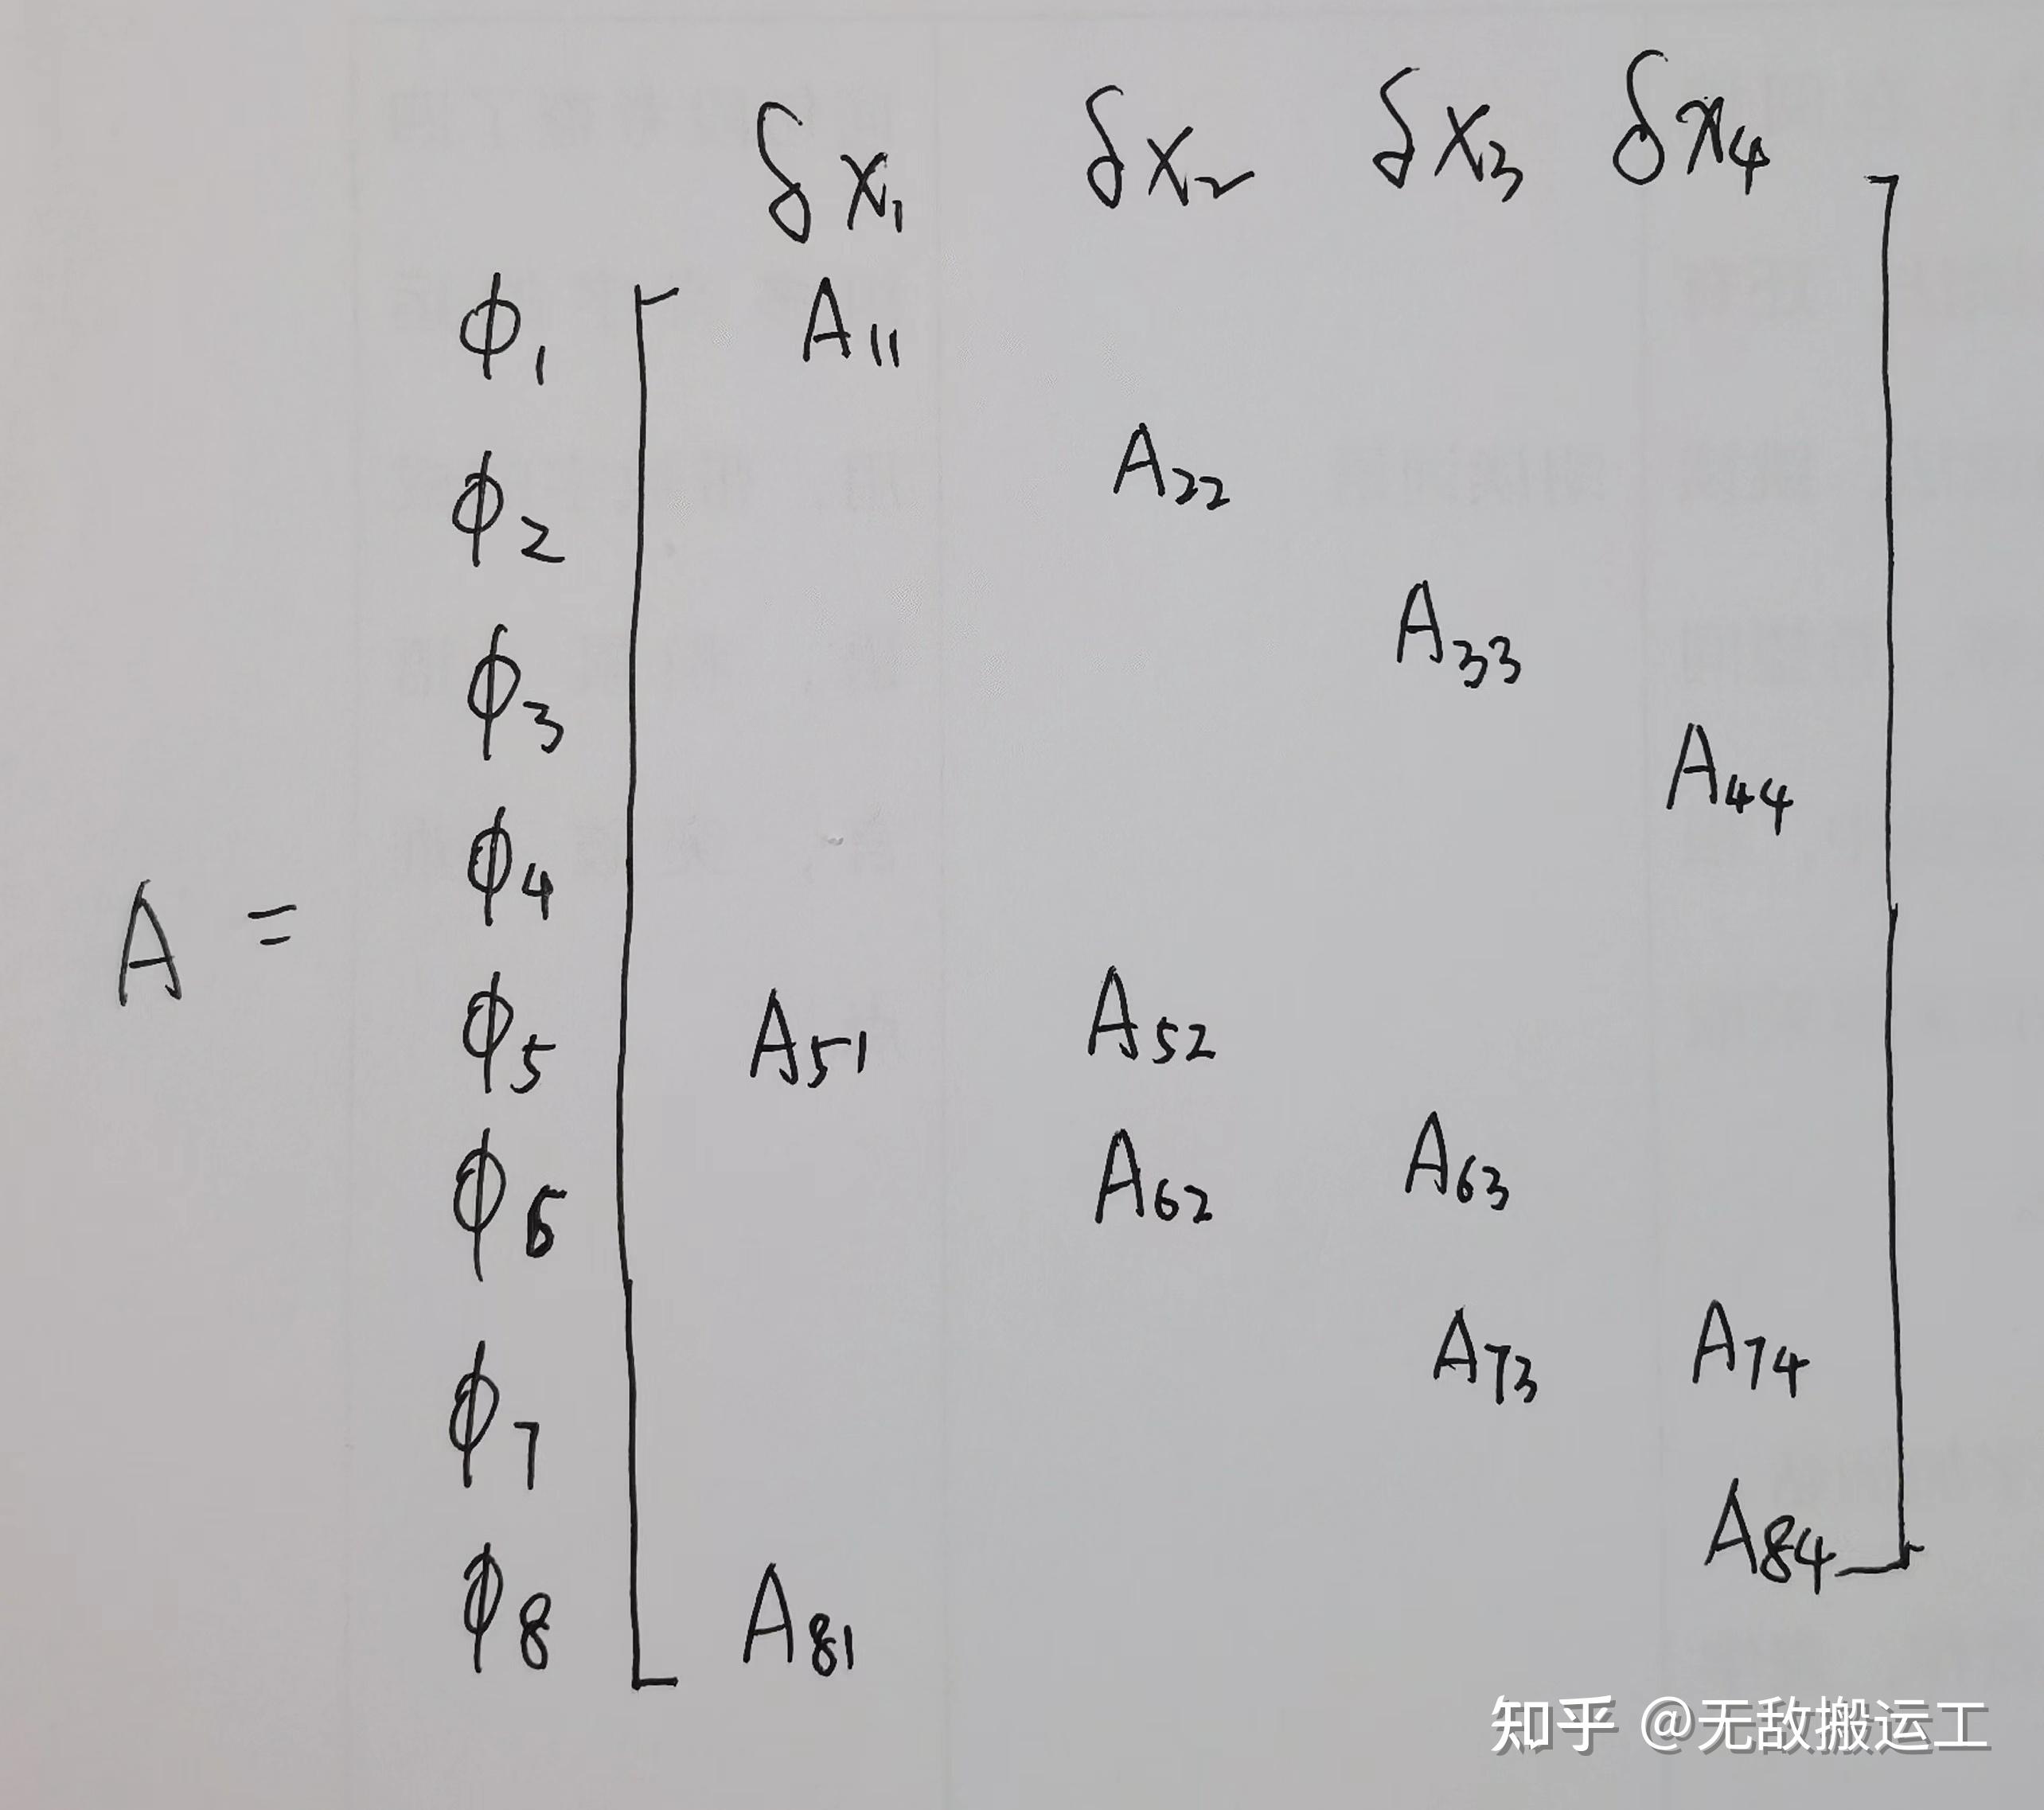 δx₁ δx₂ δx₃ δx₄
ϕ₁ A₁₁
ϕ₂ A₂₂
ϕ₃ A₃₃
ϕ₄ A₄₄
A =
ϕ₅ A₅₁ A₅₂
ϕ₆ A₆₂ A₆₃
ϕ₇ A₇₃ A₇₄
ϕ₈ A₈₁ A₈₄
知乎 @无敌搬运工